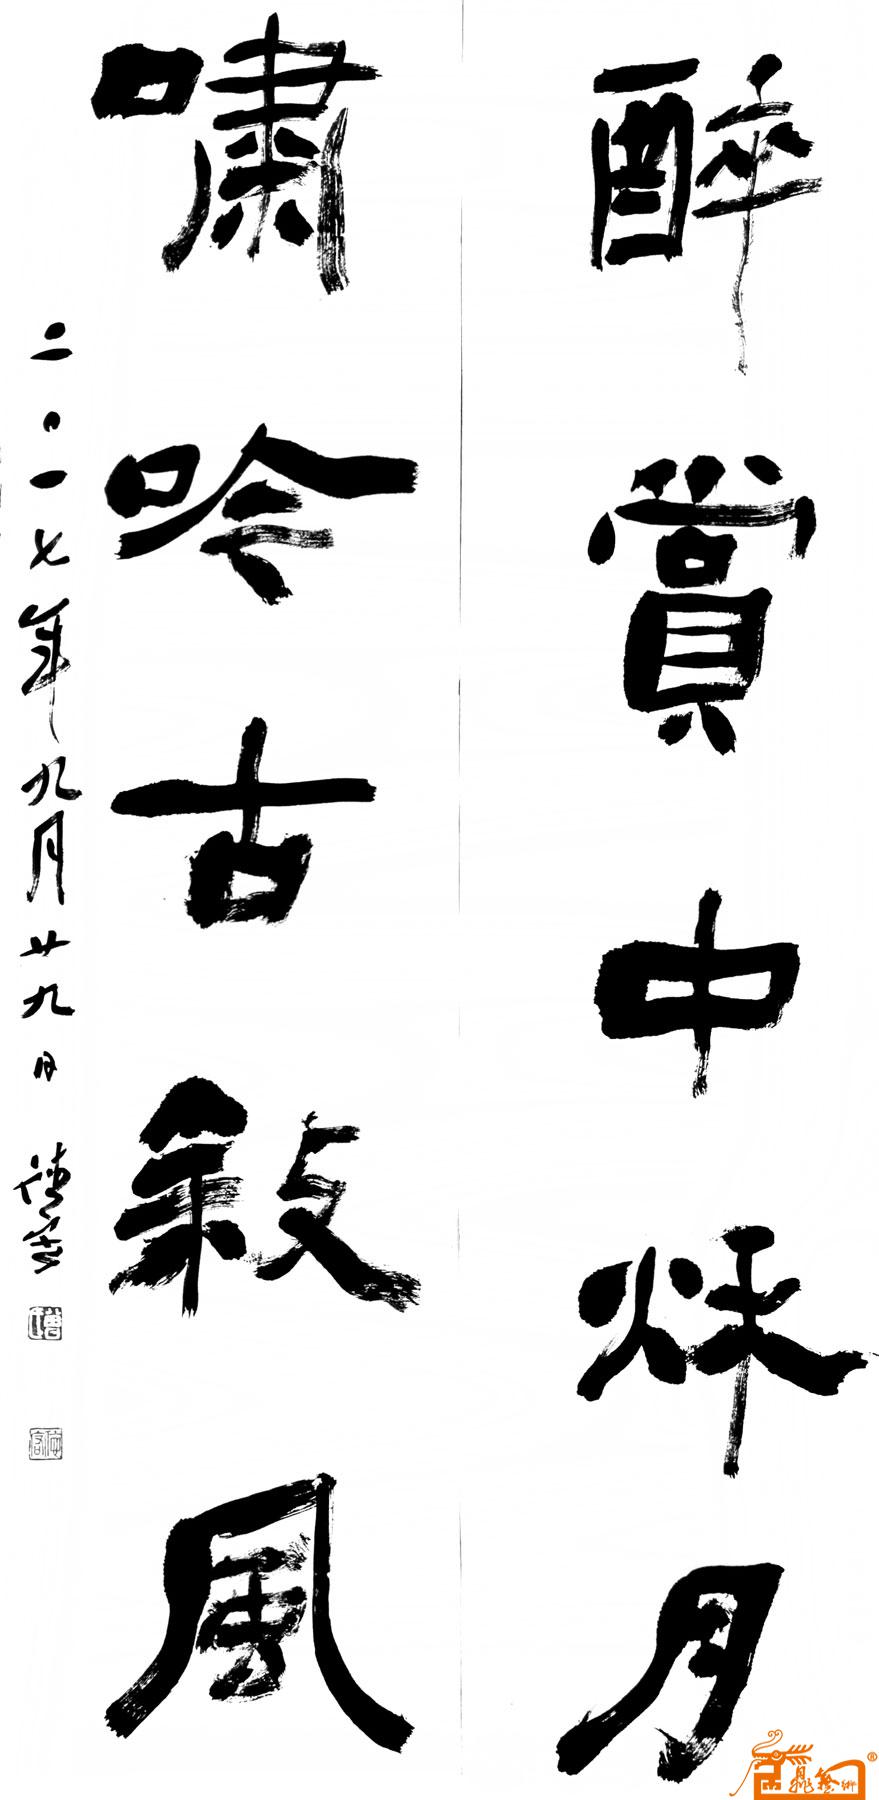 醉賞中秌月
嘯吟古敘風
二〇一七年九月廿九日